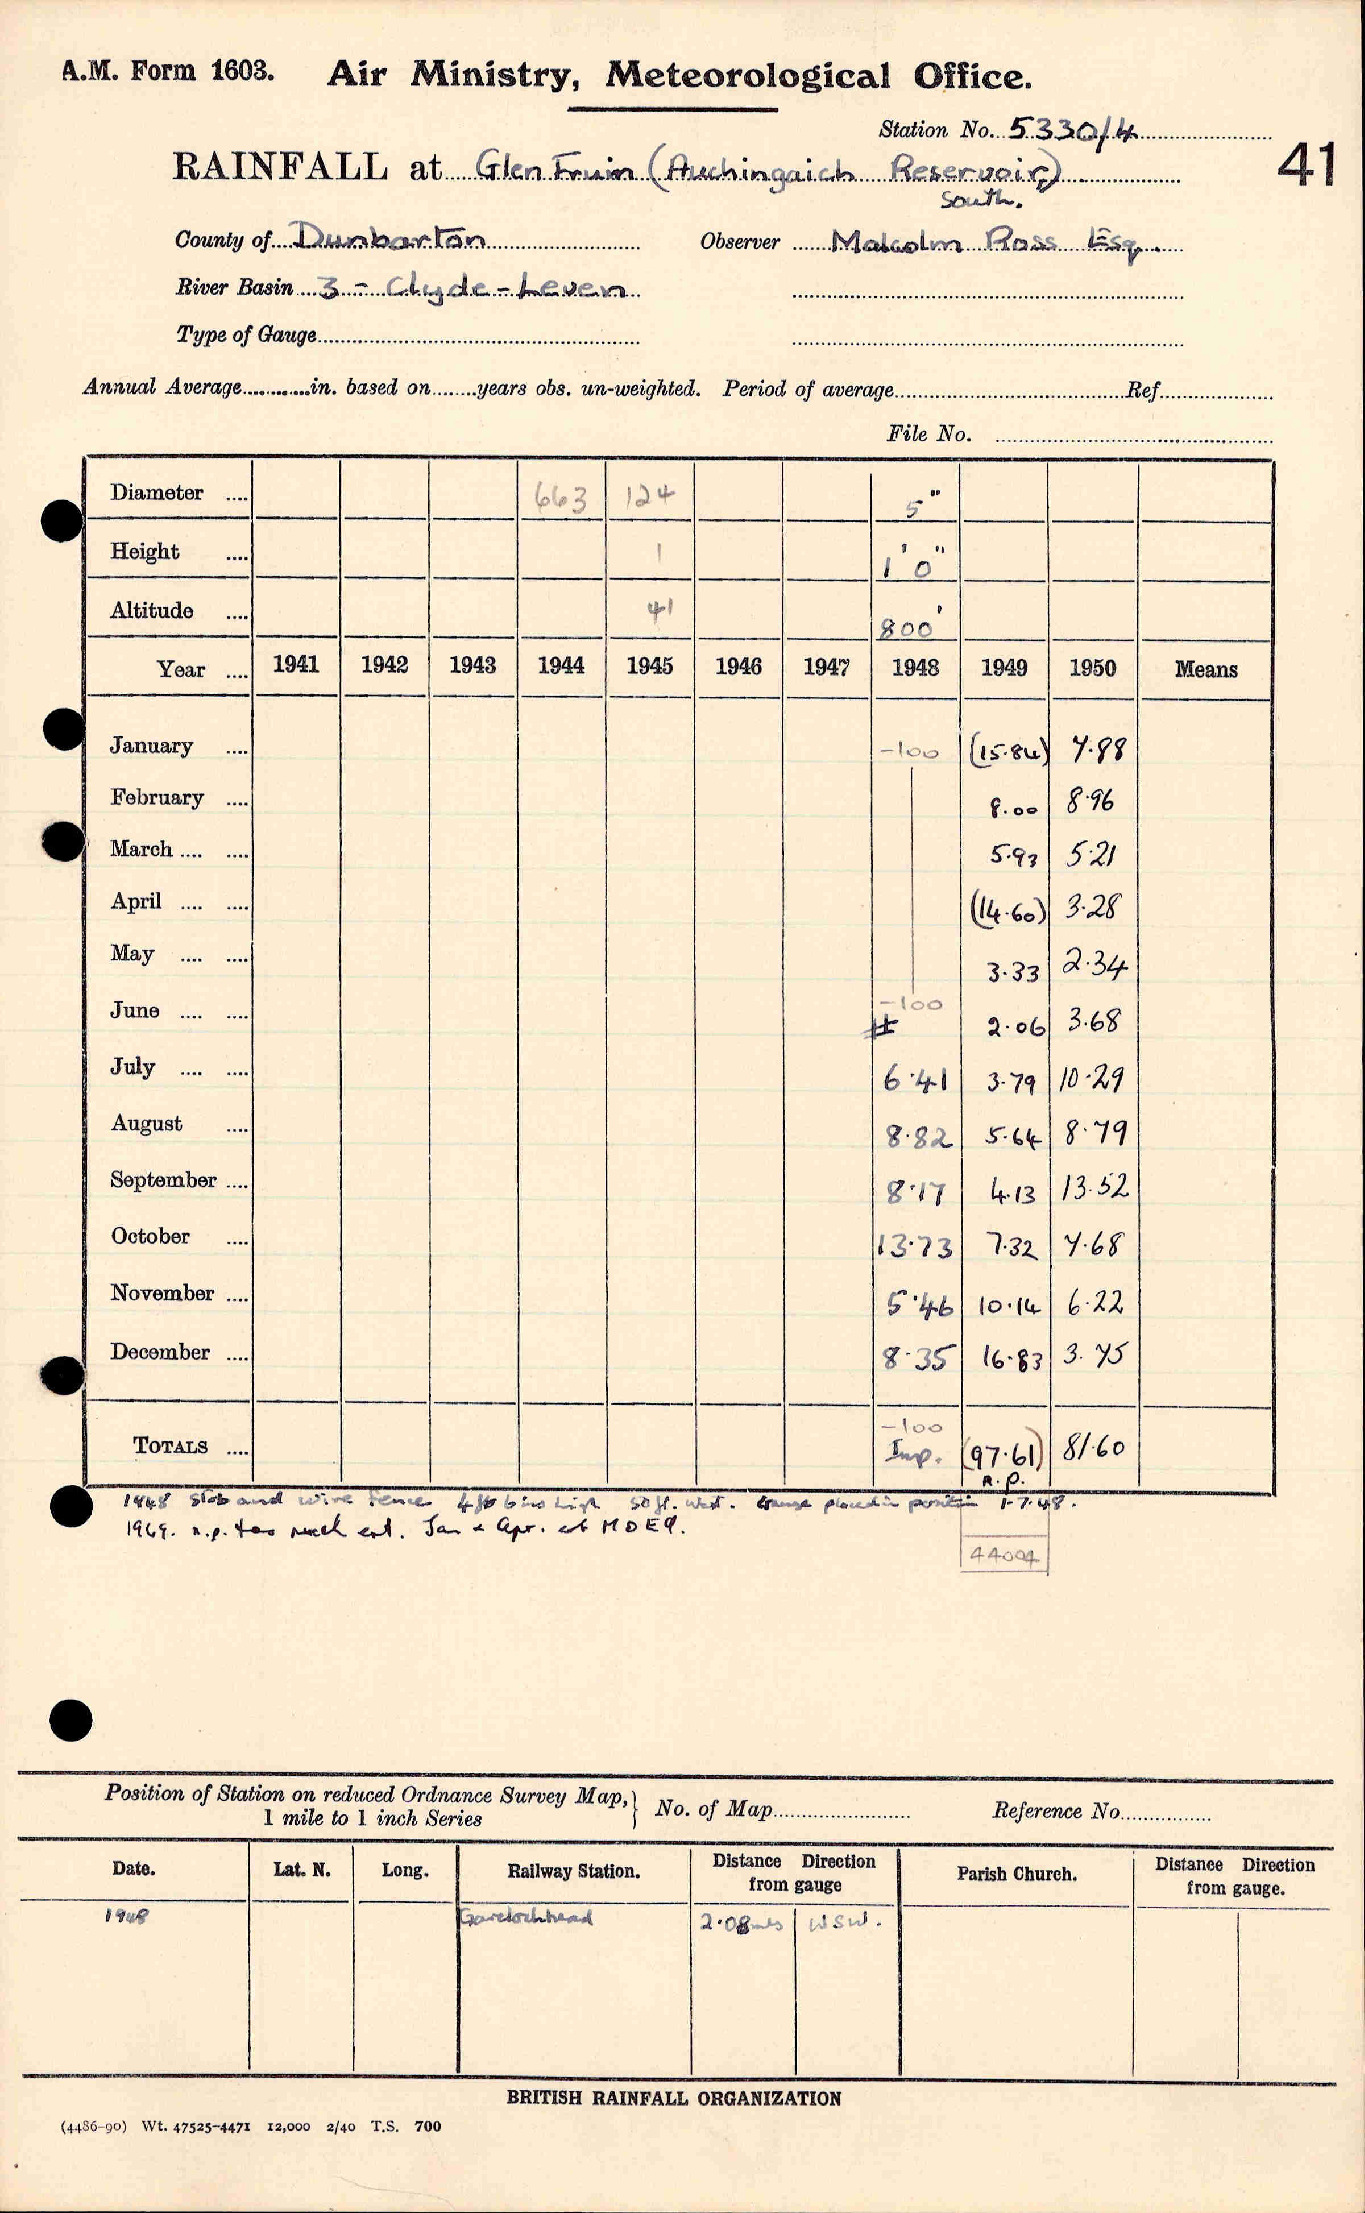 A.M. Form 1603. Air Ministry, Meteorological Office.
Station No. 5330/4
41
RAINFALL at Glen Fruin (Auchingaich Reservoir,)
South.
County of Dunbarton Observer Malcolm Ross Esq.
River Basin 3 - Clyde-Leven
Type of Gauge
Annual Average in. based on years obs. un-weighted. Period of average Ref.
File No.
Diameter 663 124 5"
Height 1 1' 0"
Altitude 41 800'
Year 1941 1942 1943 1944 1945 1946 1947 1948 1949 1950 Means
January -100 (15.84) 7.88
February 8.00 8.96
March 5.93 5.21
April (14.60) 3.28
May 3.33 2.34
June -100 2.06 3.68
July 6.41 3.79 10.29
August 8.82 5.64 8.79
September 8.17 4.13 13.52
October 13.73 7.32 7.68
November 5.46 10.14 6.22
December 8.35 16.83 3.75
TOTALS -100 Imp. (97.61) 81.60
n.p.
1948 Stob and wire Fence 4ft 6ins high 50 ft. West. Gauge placed in position 1-7-48.
1949. n.p. too much est. Jan & Apr. est MOE9.
44004
Position of Station on reduced Ordnance Survey Map, 1 mile to 1 inch Series No. of Map Reference No.
Date. Lat. N. Long. Railway Station. Distance Direction from gauge Parish Church. Distance Direction from gauge.
1948 Garelochhead 2.08 mls WSW.
BRITISH RAINFALL ORGANIZATION
(4486-90) Wt. 47525-4471 12,000 2/40 T.S. 700